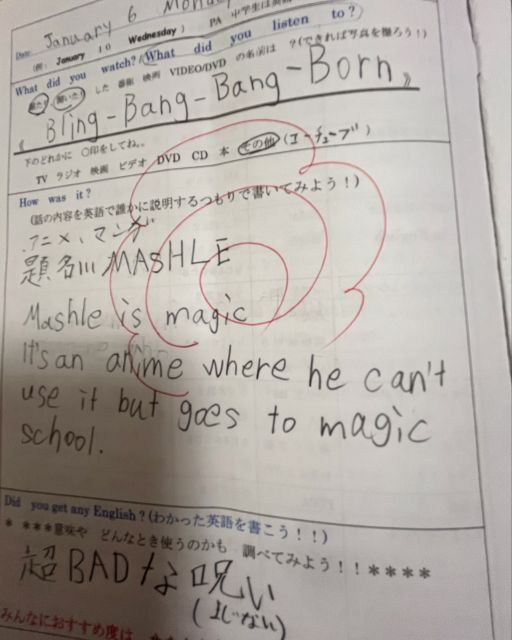 Date: January 6 Monday
(例: January 10 Wednesday) PA 中学生は英語
What did you watch?/What did you listen to?
見た 聞いた した 番組 映画 VIDEO/DVD の名前は ?(できれば写真を撮ろう!)
《 Bling-Bang-Bang-Born 》
下のどれかに ○印をしてね。
TV ラジオ 映画 ビデオ DVD CD 本 その他 (ユーチューブ)
How was it?
(話の内容を英語で誰かに説明するつもりで書いてみよう!)
アニメ、マンガ
題名は MASHLE
Mashle is magic
It's an anime where he can't
use it but goes to magic
school.
Did you get any English?(わかった英語を書こう!!)
* ***意味や どんなとき使うのかも 調べてみよう!!****
超BADな呪い
(まじない)
みんなにおすすめ度は